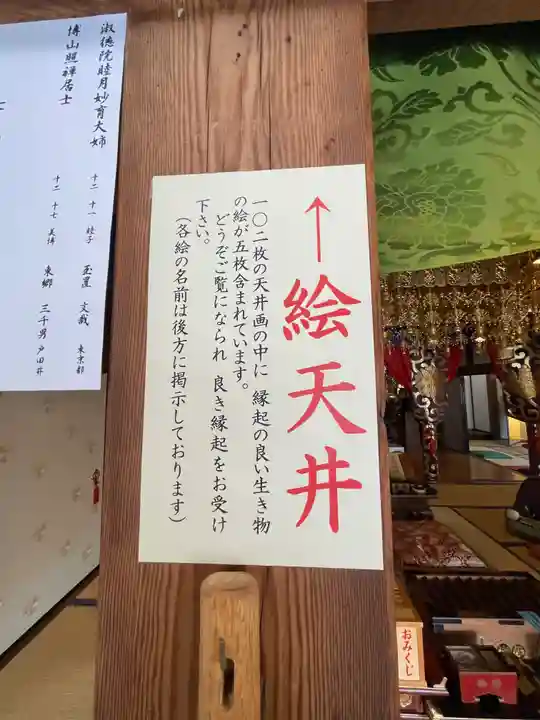 ↑絵天井
一〇二枚の天井画の中に 縁起の良い生き物
の絵が五枚含まれています。
どうぞご覧になられ 良き縁起をお受け
下さい。
(各絵の名前は後方に掲示しております)
淑徳院睦月妙育大姉
十二 十一 睦子
東京都
博山照禅居士
十二 十七 美博
東郷 三千男 戸田井
おみくじ